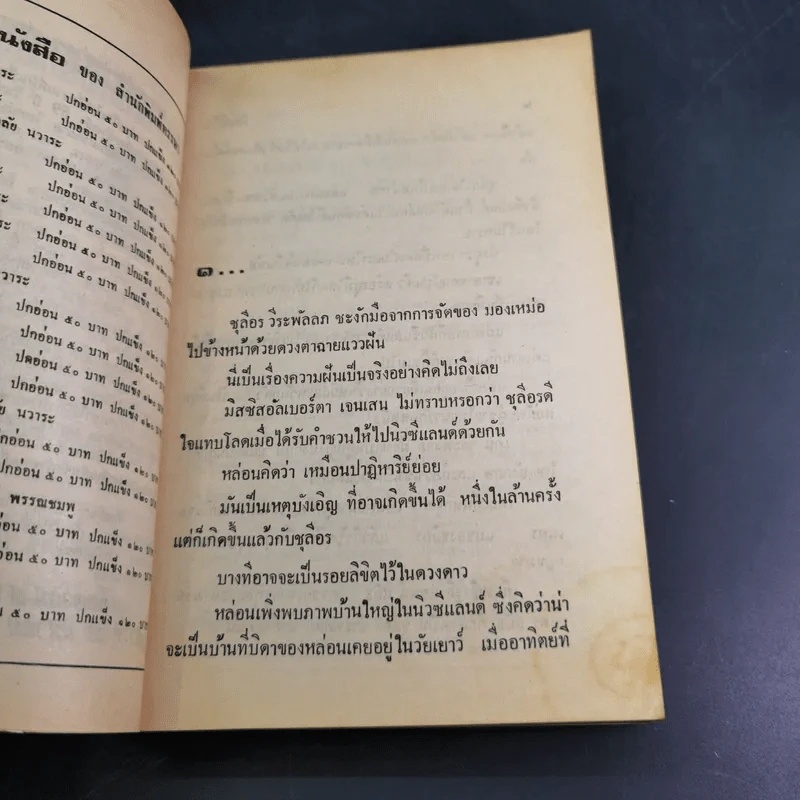 นังสือ ของ สำนักพิมพ์
ระ ปกอ่อน ๕๐ บาท ปกแข็ง ๑๒๐
ปกอ่อน ๕๐ บาท ปกแข็ง ๑๒๐
ลัย นวาระ
ปกอ่อน ๕๐ บาท ปกแข็ง
ระ ปกอ่อน ๕๐ บาท ปกแข็ง ๑๒๐
ระ ปกอ่อน ๕๐ บาท ปกแข็ง ๑๒๐
ปกอ่อน ๕๐ บาท ปกแข็ง ๑๒๐
วาระ
ปกอ่อน ๕๐ บาท ปกแข็ง ๑๒๐
ปกอ่อน ๕๐ บาท ปกแข็ง ๑๒๐ บาท
ปกอ่อน ๕๐ บาท ปกแข็ง ๑๒๐ บาท
ปกอ่อน ๕๐ บาท ปกแข็ง ๑๒๐ บาท
ย นวาระ
ปกอ่อน ๕๐ บาท ปกแข็ง ๑๒๐ บาท
ปกอ่อน ๕๐ บาท ปกแข็ง ๑๒๐ บาท
พรรณชมพู
อ่อน ๕๐ บาท ปกแข็ง ๑๒๐ บาท
อ่อน ๕๐ บาท ปกแข็ง ๑๒๐ บาท
น ๕๐ บาท ปกแข็ง ๑๒๐ บาท
๑...
ชุลีอร วีระพัลลภ ชะงักมือจากการจัดของ มองเหม่อ
ไปข้างหน้าด้วยดวงตาฉายแววฝัน
นี่เป็นเรื่องความฝันเป็นจริงอย่างคิดไม่ถึงเลย
มิสซิสอัลเบอร์ตา เจนเสน ไม่ทราบหรอกว่า ชุลีอรดี
ใจแทบโลดเมื่อได้รับคำชวนให้ไปนิวซีแลนด์ด้วยกัน
หล่อนคิดว่า เหมือนปาฏิหาริย์ย่อย
มันเป็นเหตุบังเอิญ ที่อาจเกิดขึ้นได้ หนึ่งในล้านครั้ง
แต่ก็เกิดขึ้นแล้วกับชุลีอร
บางทีอาจจะเป็นรอยลิขิตไว้ในดวงดาว
หล่อนเพิ่งพบภาพบ้านใหญ่ในนิวซีแลนด์ ซึ่งคิดว่าน่า
จะเป็นบ้านที่บิดาของหล่อนเคยอยู่ในวัยเยาว์ เมื่ออาทิตย์ที่